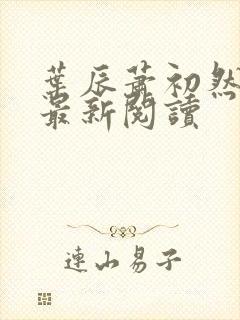 葉辰蕭初然
最新閱讀
連山易子